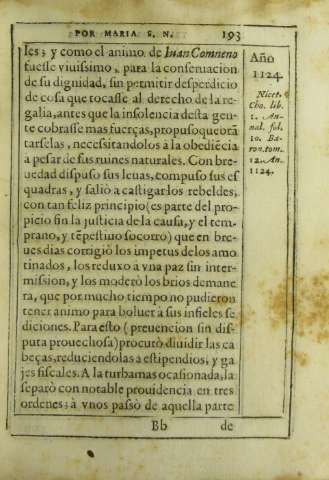 POR MARIA S. N. 193
les; y como el animo de Iuan Comneno
fuesse viuissimo, para la conseruacion
de su dignidad, sin permitir desperdicio
de cosa que tocasse al derecho de la re-
galia, antes que la insolencia desta gen-
te cobrasse mas fuerças, propuso quebrã
tarselas, necessitandolos à la obediẽcia
a pesar de sus ruines naturales. Con bre-
uedad dispuso sus leuas, compuso sus es
quadras, y saliò a castigar los rebeldes,
con tan feliz principio (es parte del pro-
picio sin la justicia de la causa, y el tem-
prano, y tẽpestiuo socorro) que en bre-
ues dias corrigiò los impetus de los amo
tinados, los reduxo à vna paz sin inter-
mission, y los moderò los brios de mane
ra, que por mucho tiempo no pudieron
tener animo para boluer à sus infieles se
diciones. Para esto (preuencion sin dis-
puta prouechosa) procurò diuidir las ca
beças, reduciendolas à estipendios, y ga
jes fiscales. A la turbamas ocasionada, la
separò con notable prouidencia en tres
ordenes; à vnos passò de aquella parte
Bb de
Año
1124.
Nicet.
Cho. lib.
1. An-
nal. fol.
10. Ba-
ron. tom.
12. An.
1124.